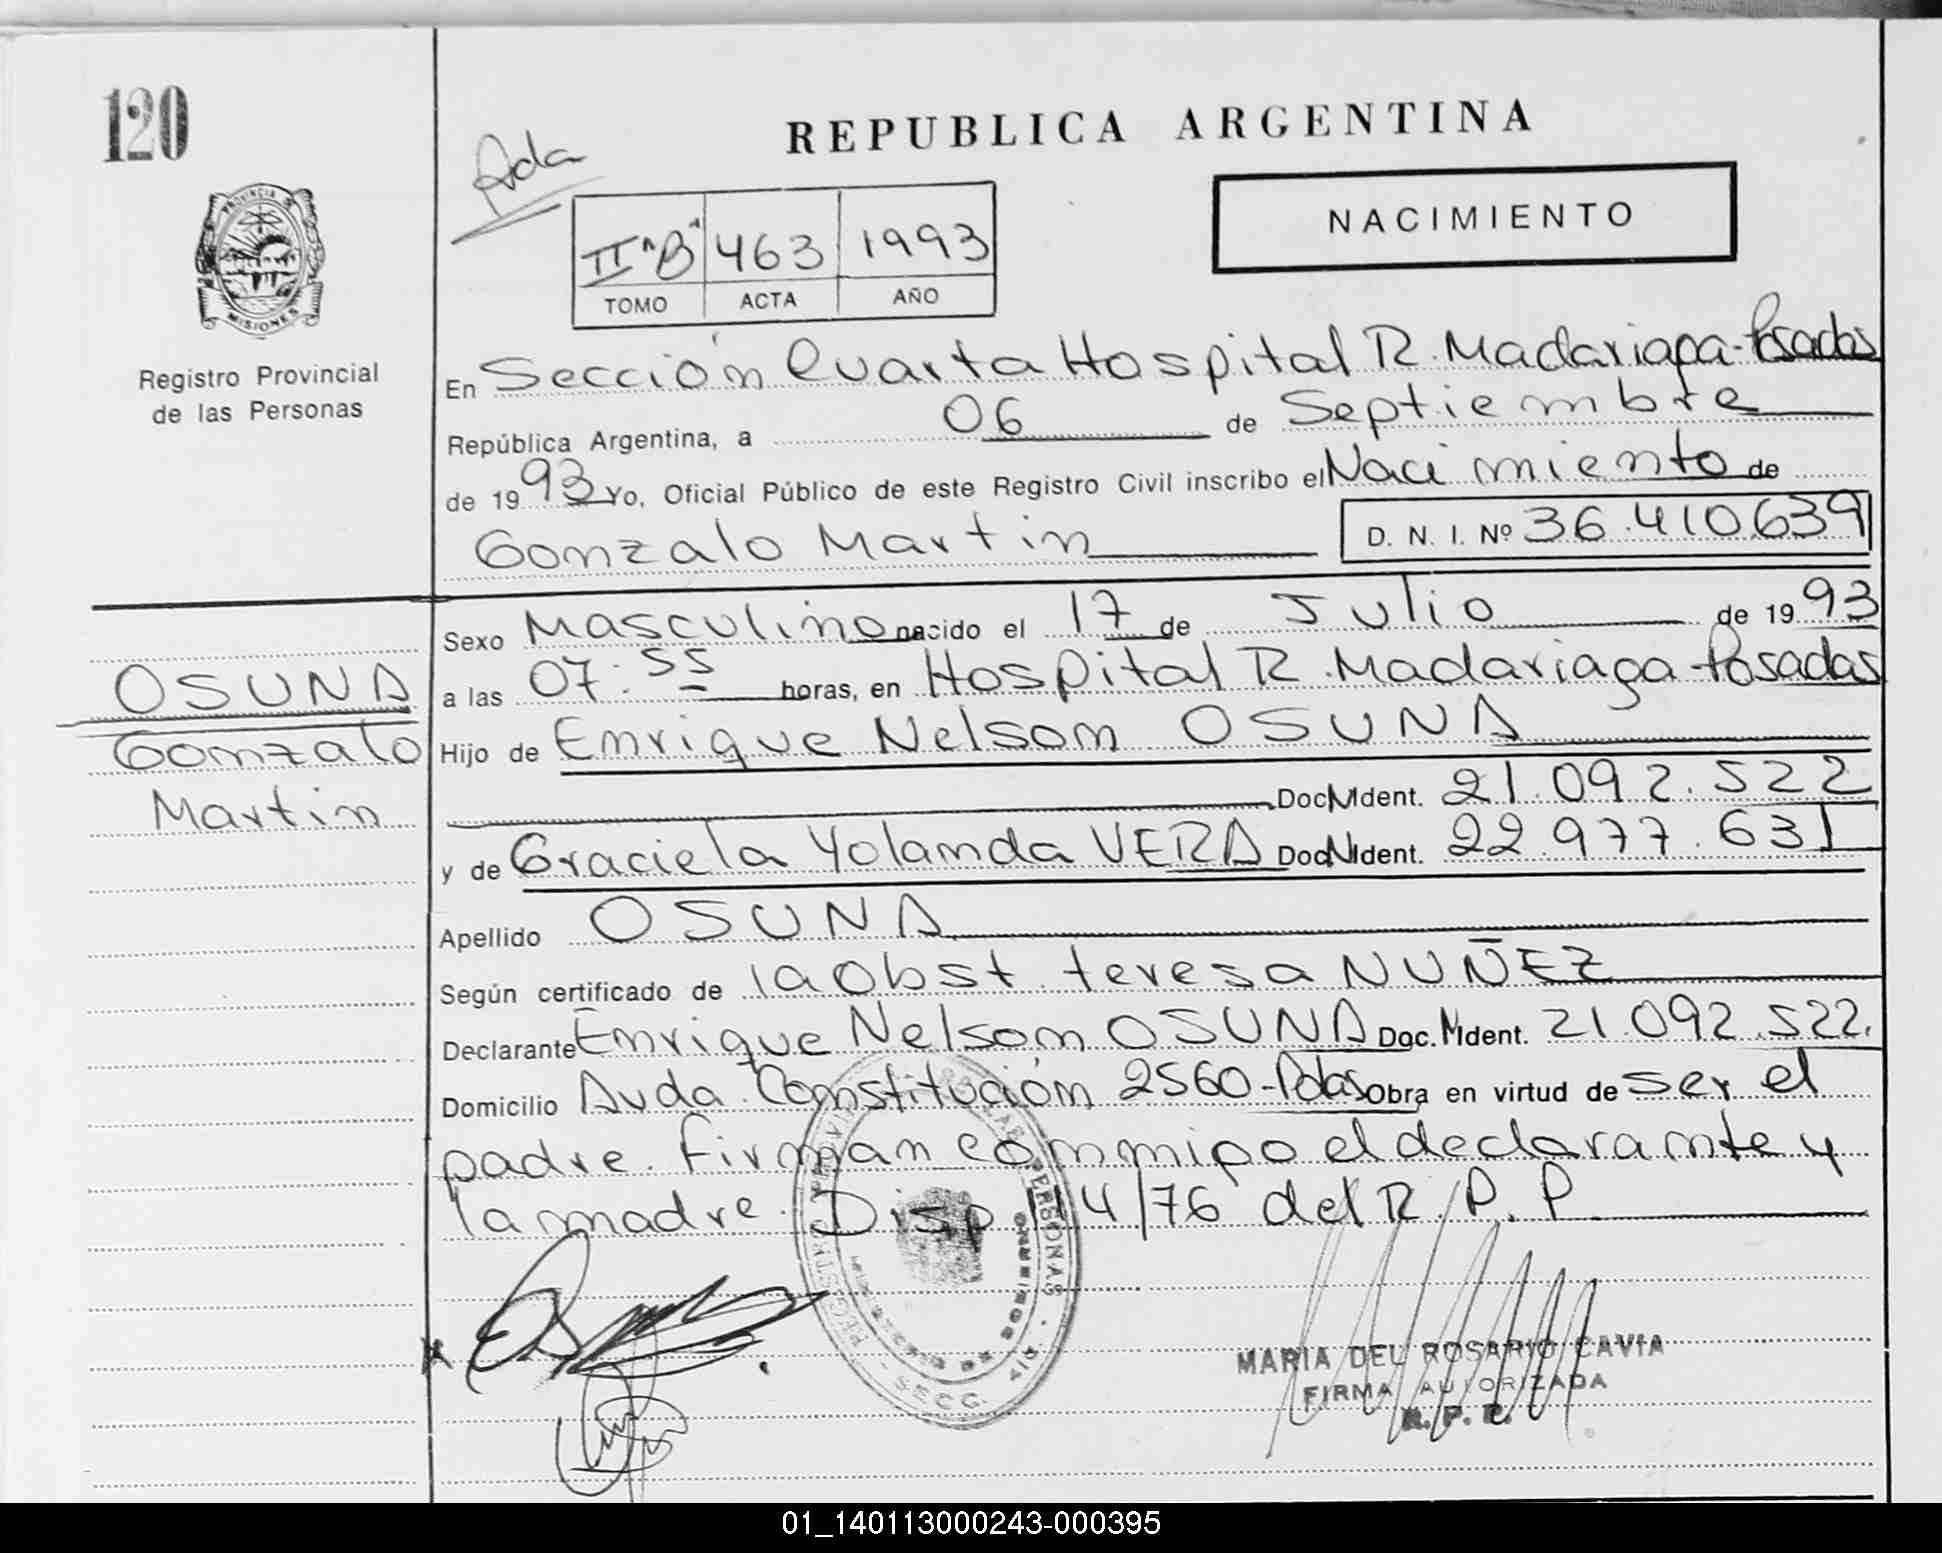 120
REPUBLICA ARGENTINA
Ada
NACIMIENTO
II "B" 463 1993
TOMO ACTA AÑO
PROVINCIA DE
MISIONES
Registro Provincial
de las Personas
En Sección Cuarta Hospital R. Madariaga-Posadas
República Argentina, a 06 de Septiembre
de 1993 Yo, Oficial Público de este Registro Civil inscribo el Nacimiento de
Gonzalo Martin D. N. I. Nº 36.410.639
Sexo Masculino nacido el 17 de Julio de 1993
OSUNA
a las 07:55 horas, en Hospital R. Madariaga-Posadas
Gonzalo
Hijo de Enrique Nelson OSUNA
Martin
Doc. N Ident. 21.092.522
y de Graciela Yolanda VERA Doc N Ident. 22.977.631
Apellido OSUNA
Según certificado de la Obst teresa NUÑEZ
Declarante Enrique Nelson OSUNA Doc. N Ident. 21.092.522.
Domicilio Avda. Constitución 2560-Pdas Obra en virtud de ser el
padre. Firman conmigo el declarante y
la madre. Disp 14/76 del R.P.P.
PERSONAS
SECC
MARIA DEL ROSARIO CAVIA
FIRMA AUTORIZADA
R. P. P.
01_140113000243-000395